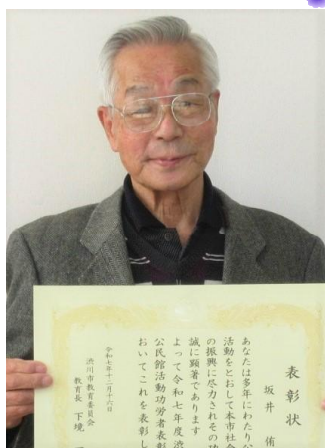 表彰状
坂井 侑
あなたは多年にわたり公
活動をとおして本市社会
の振興に尽力されその功
誠に顕著であります
よって令和七年度渋
公民館活動功労者表彰
おいてこれを表彰し
令和七年十二月十六日
渋川市教育委員会
教育長 下境